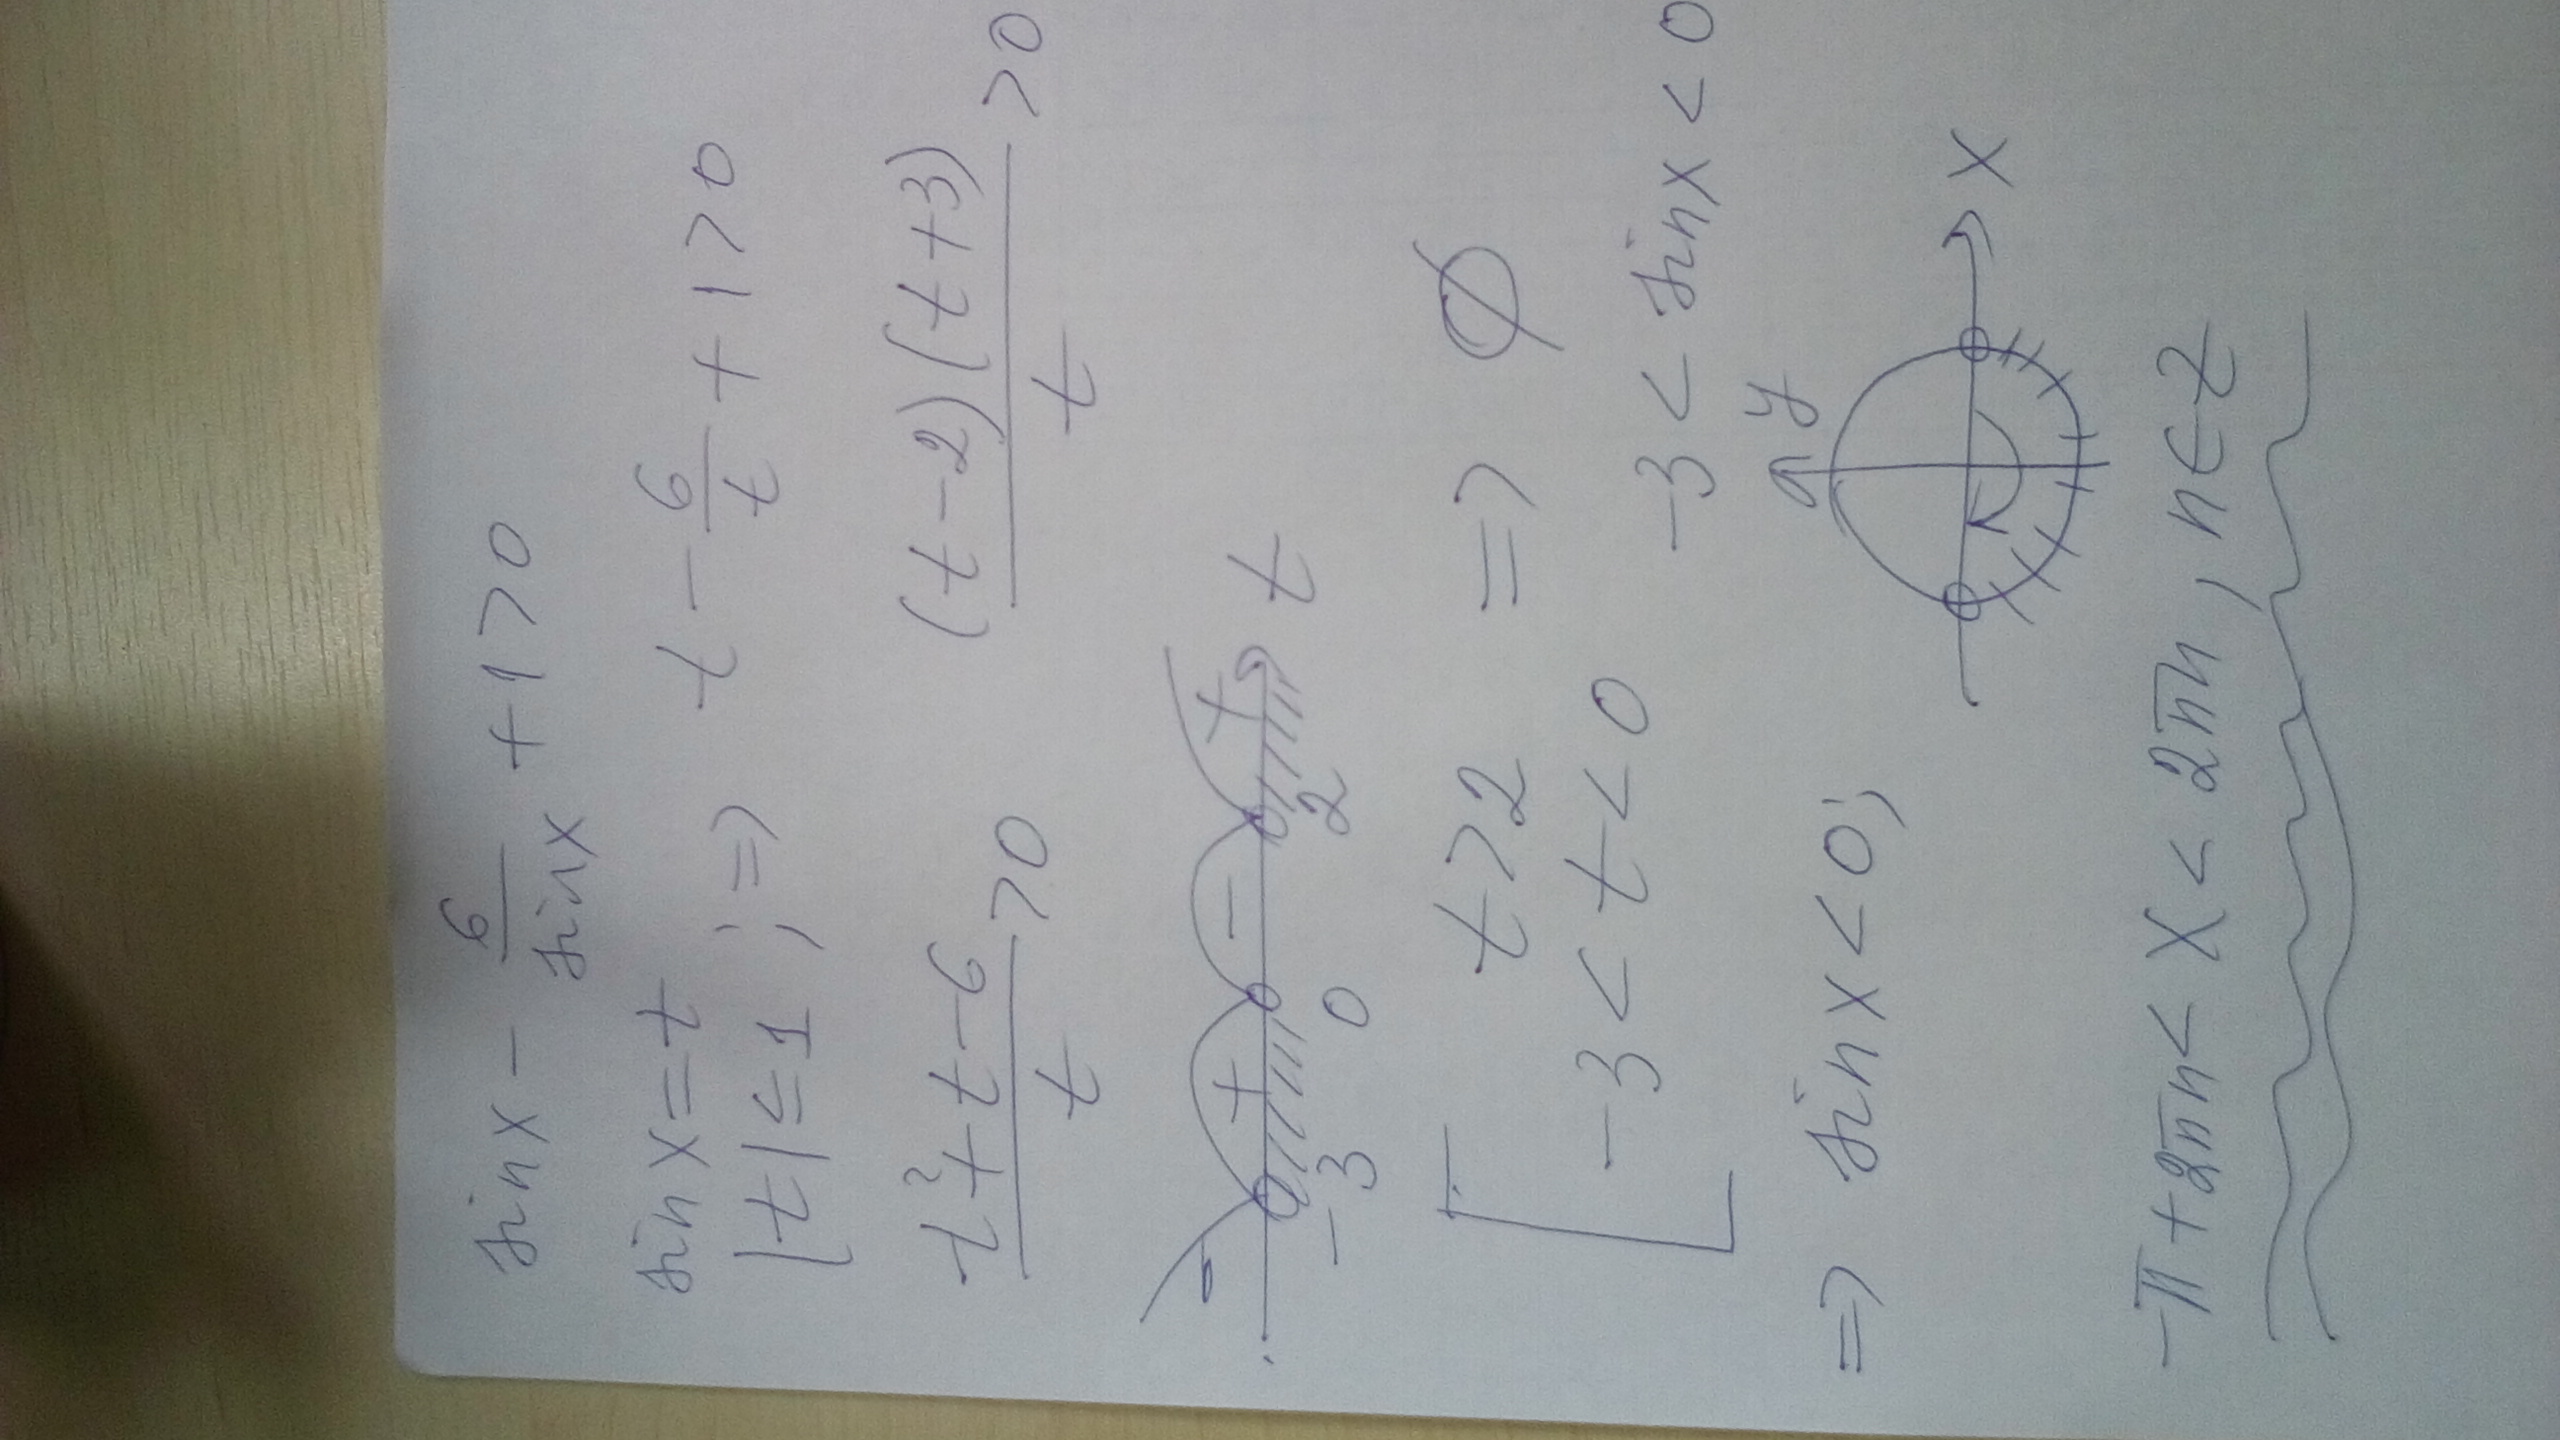 sin x - 6/sin x + 1 > 0
sin x = t
|t| ≤ 1 ; => t - 6/t + 1 > 0
(t² + t - 6)/t > 0 (t - 2)(t + 3)/t > 0
- + - +
-3 0 2 t
[ t > 2 => Ø
-3 < t < 0 -3 < sin x < 0
=> sin x < 0; y x
-π + 2πn < x < 2πn, n ∈ Z